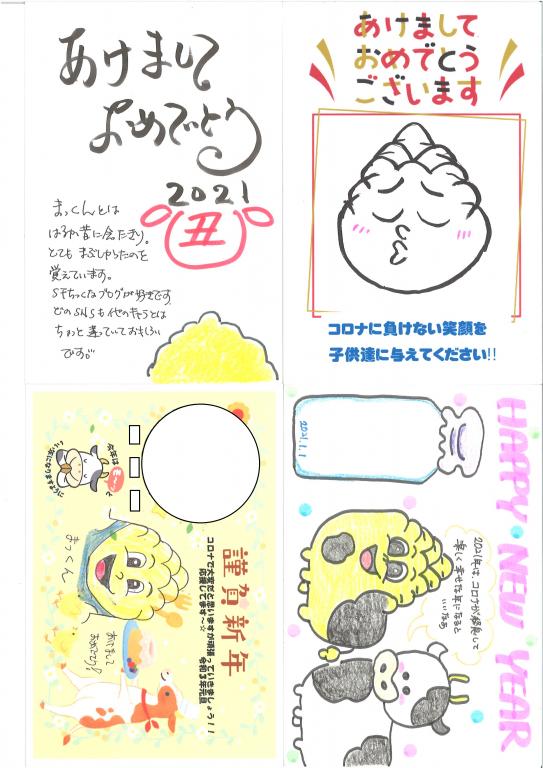 あけまして
おめでとう
2021
丑
まっくんとは
はるか昔に会ったきり。
とても まぶしかったのを
覚えています。
どのSNSも他のキャラとは
ちょっと違っていておもしろい
です。
あけまして
おめでとう
ございます
コロナに負けない笑顔を
子供達に与えてください!!
謹賀新年
コロナで大変だと思いますが頑張っていきましょう!!
応援してます〜☆
令和3年元旦
今年は
も〜っと
いい年になりますように
まっくん
あけまして
おめでとう!
HAPPY NEW YEAR
2021.1.1
2021年は、コロナが終息して
楽しく幸せな年になると
いいなぁ